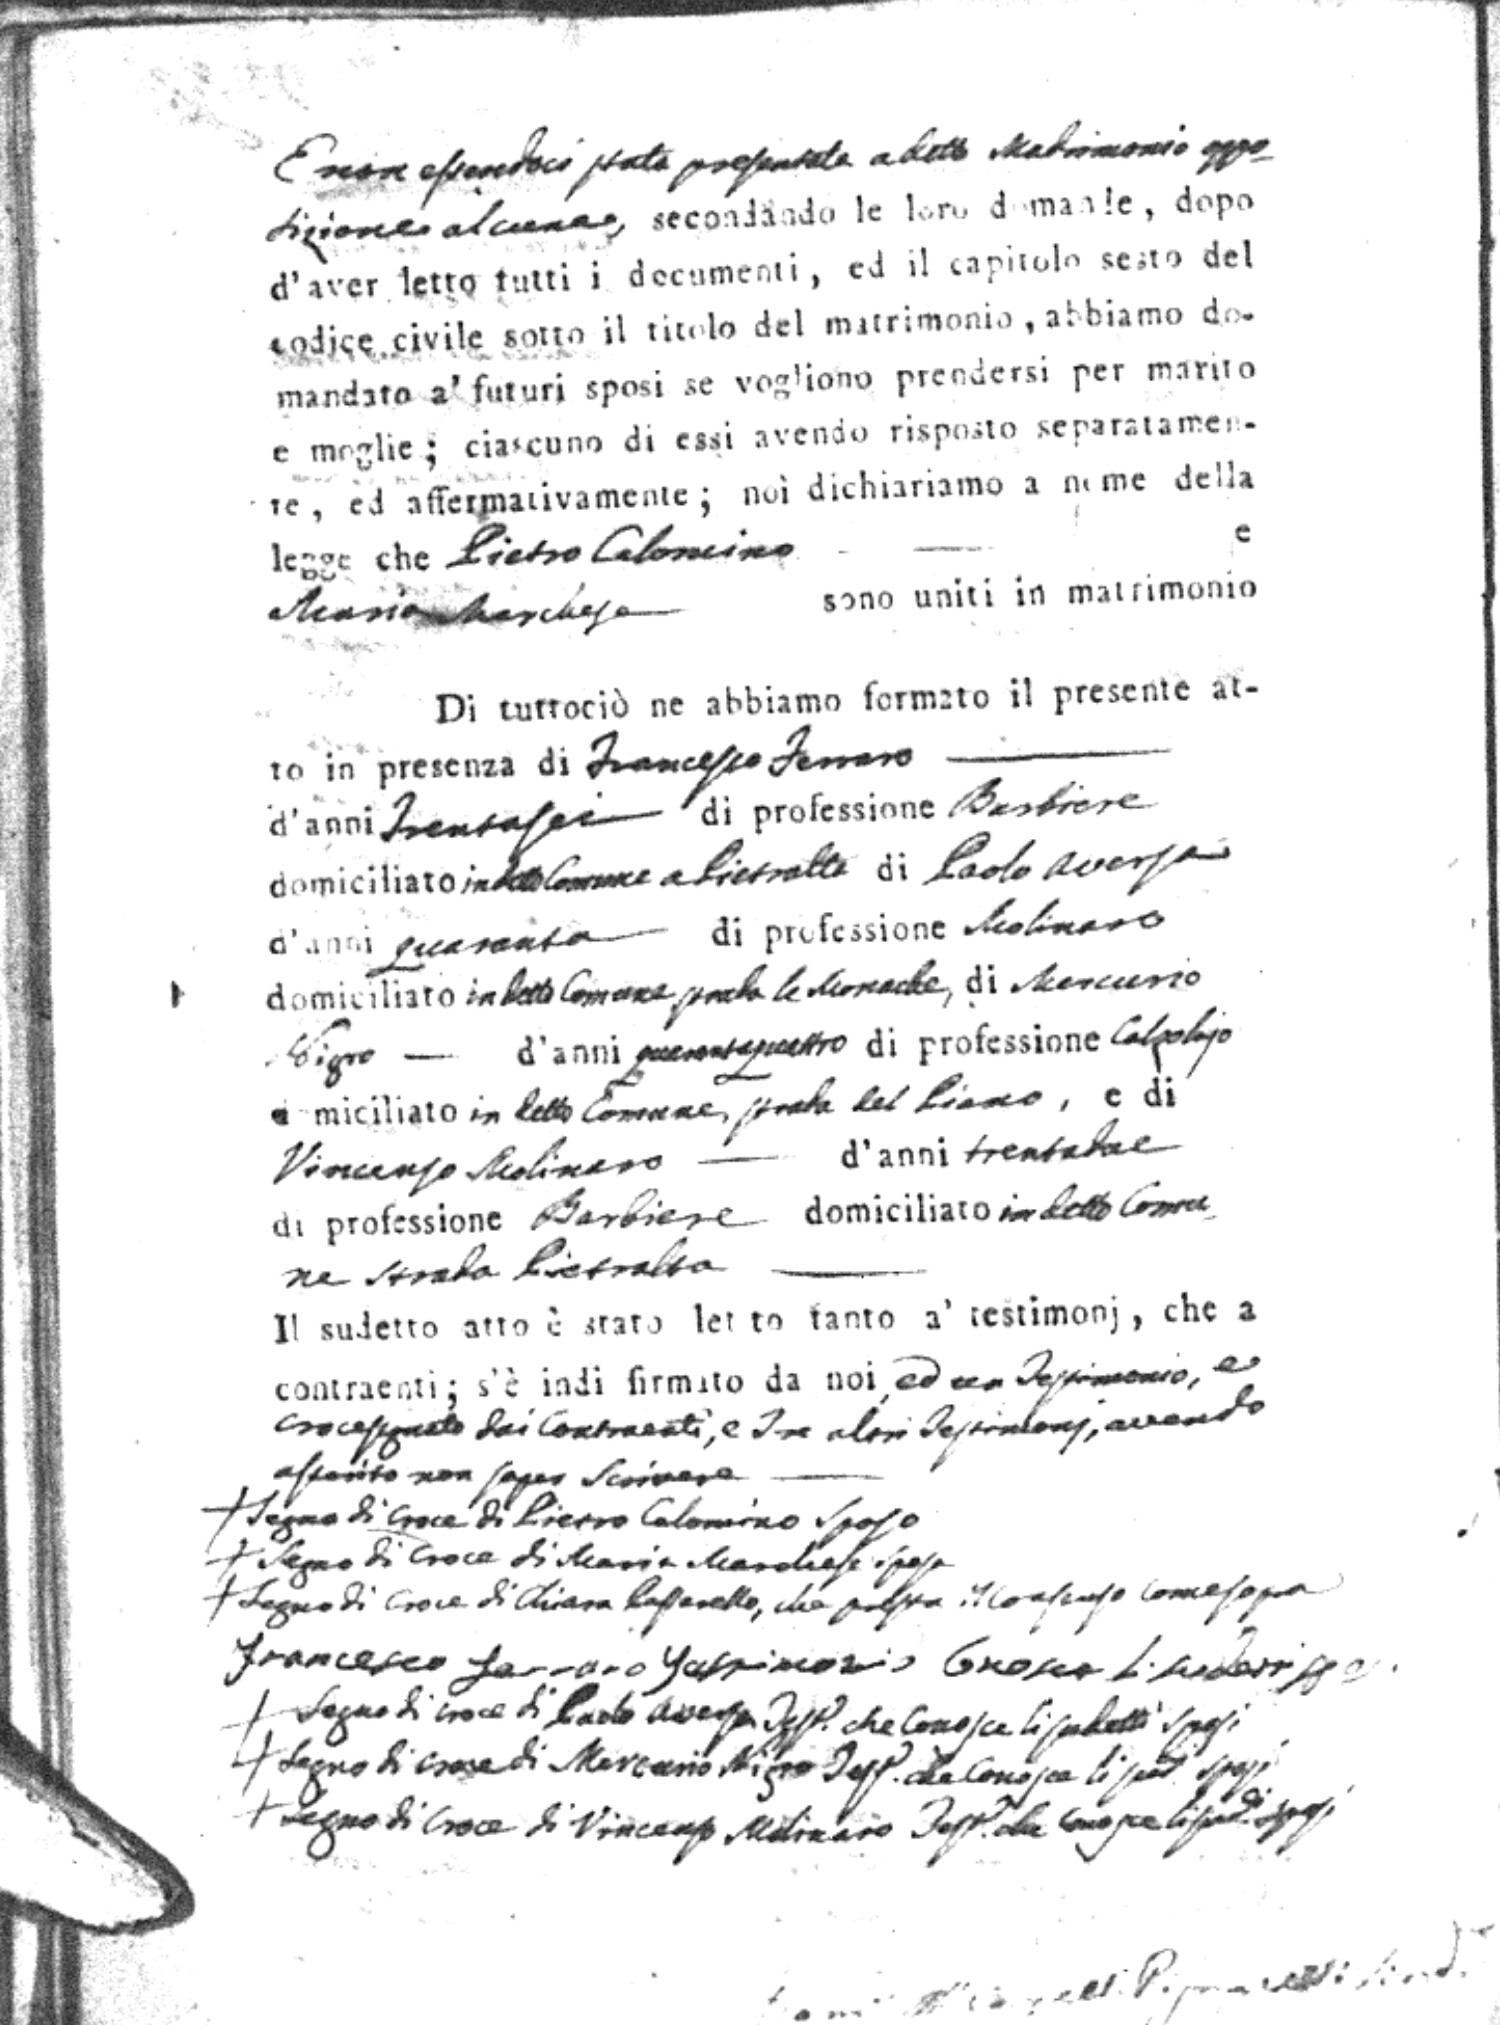 E non essendoci stata presentata a detto Matrimonio oppo-
sizione alcuna, secondando le loro domande, dopo
d'aver letto tutti i documenti, ed il capitolo sesto del
codice civile sotto il titolo del matrimonio, abbiamo do-
mandato a' futuri sposi se vogliono prendersi per marito
e moglie; ciascuno di essi avendo risposto separatamen-
te, ed affermativamente; noi dichiariamo a nome della
legge che Pietro Calomino — e
Maria Marchese sono uniti in matrimonio
Di tuttociò ne abbiamo formato il presente at-
to in presenza di Francesco Ferraro —
d'anni Trentasei di professione Barbiere
domiciliato in detto Comune a Pietralta di Paolo Aversa
d'anni quaranta di professione Molinaro
domiciliato in detto Comune strada le Monache, di Mercurio
Nigro — d'anni quarantaquattro di professione Calzolajo
domiciliato in detto Comune, strada del Piano, e di
Vincenzo Molinaro — d'anni trentadue
di professione Barbiere domiciliato in detto Comu-
ne strada Pietralta —
Il sudetto atto è stato letto tanto a' testimonj, che a
contraenti; s'è indi firmato da noi, ed un Testimonio, e
crocesegnato dai Contraenti, e Tre altri Testimonj, avendo
asserito non saper scrivere —
+ Segno di Croce di Pietro Calomino Sposo
+ Segno di Croce di Maria Marchese sposa
+ Segno di Croce di Chiara, che presta il Consenso come sopra
Francesco Ferraro Testimonio Conosco li sudetti sposi
+ Segno di croce di Paolo Aversa Test.° che Conosce li sudetti sposi
+ Segno di croce di Mercurio Nigro Test.° che Conosce li sud.ⁱ sposi
+ Segno di Croce di Vincenzo Molinaro Test.° che conosce li sud.ⁱ sposi